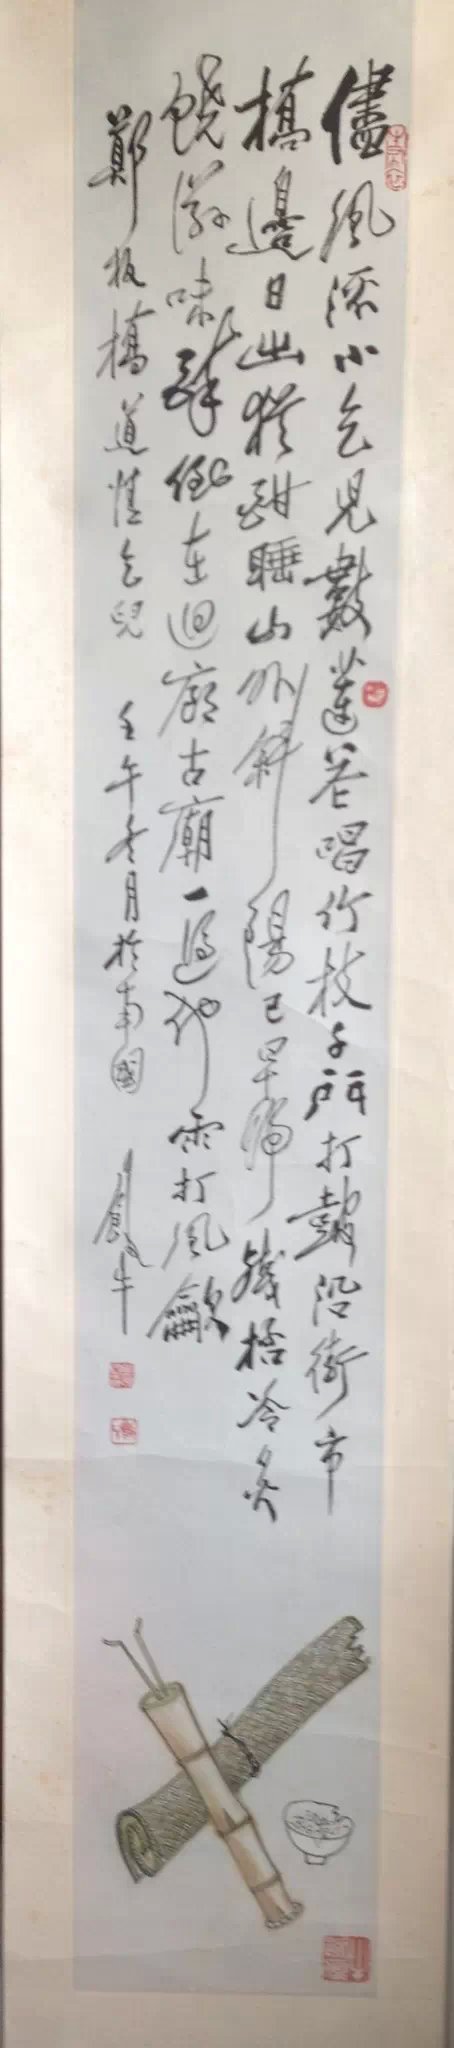 儘風流小乞児數蓮花唱竹枝千門打鼓沿街市
橋邊日出猶酣睡山外斜陽已早歸殘桮冷炙
饒滋味醉倒在迴廊古廟一他雨打風龡
鄭板橋道情乞兒 壬午冬月於南國 牛